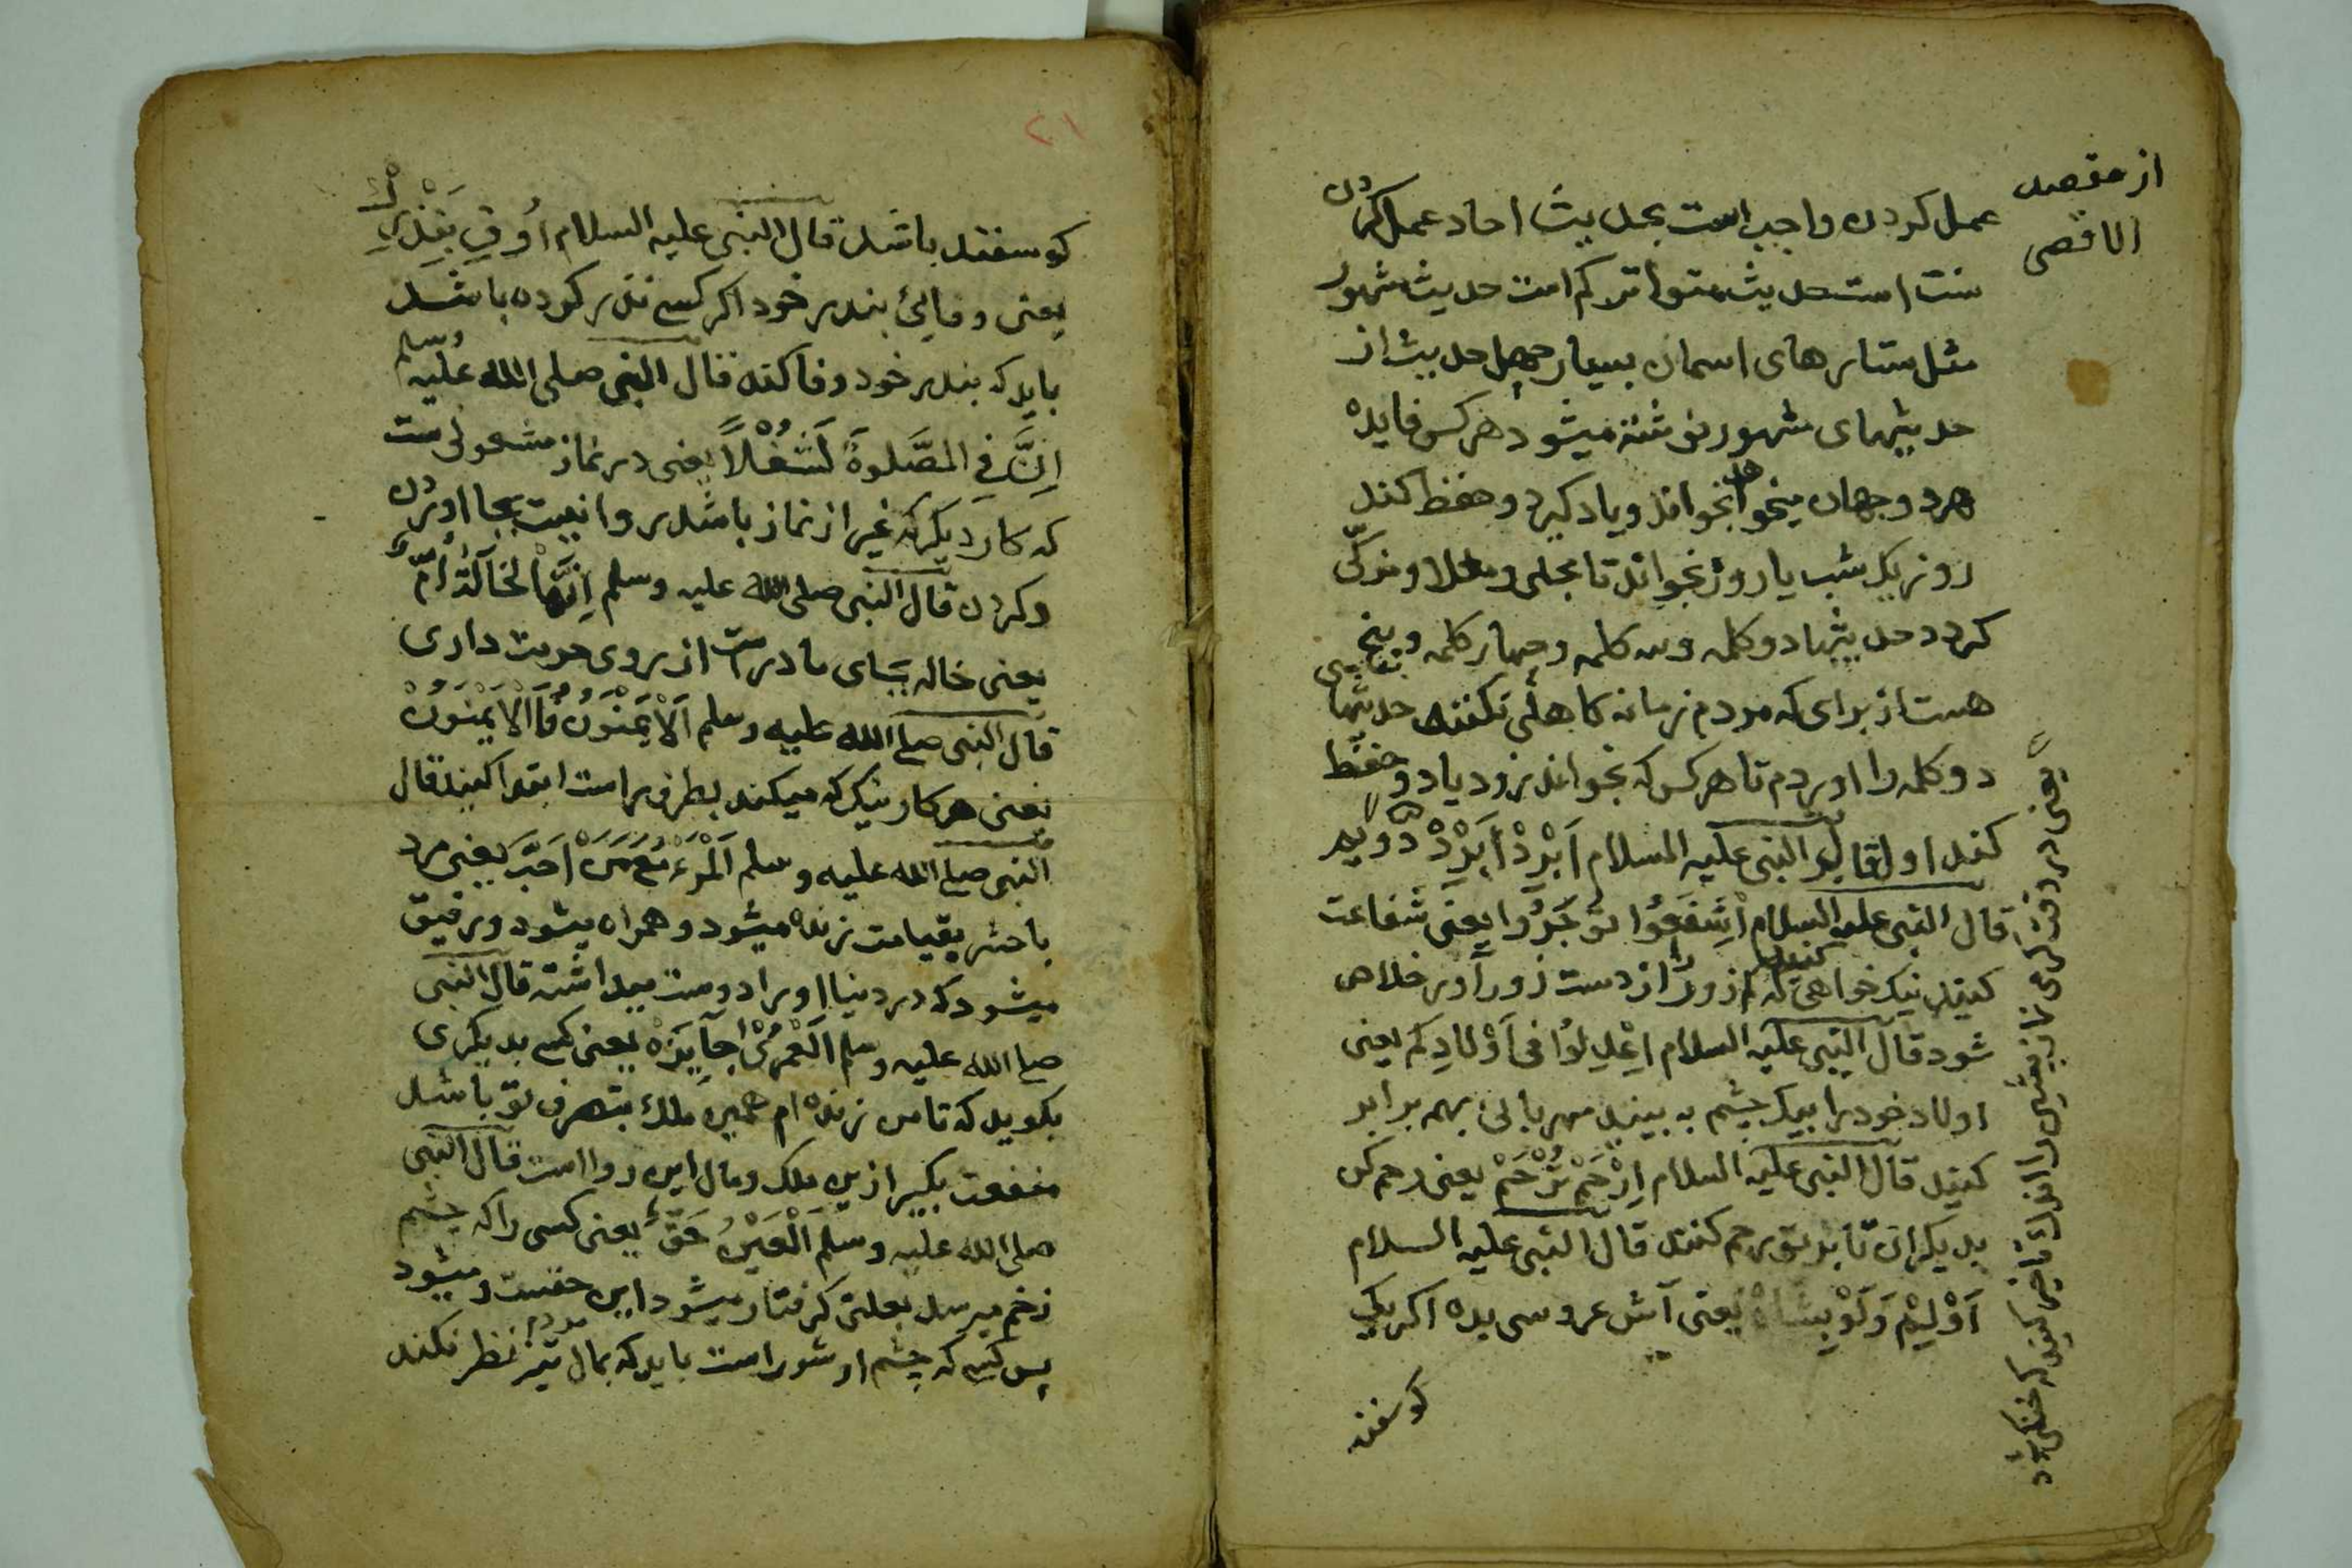 از مقصد
الاقصی
عمل کردن واجب است بحدیث احاد عمل کردن
سنت است حدیث متواتر کم است حدیث مشهور
مثل ستارهای اسمان بسیار چهل حدیث از
حدیثهای مشهور نوشته میشود هرکس فایده
هردو جهان میخواهد بخواند و یاد گیرد و حفظ کند
روز یک شب یا روز بخواند تا مجلی و محلا و مزکّی
کردد حدیثها دو کلمه و سه کلمه و چهار کلمه و پنج
هست از برای که مردم زمانه کاهلی نکنند حدیثها
دو کلمه را اوردم تا هرکس که بخواند زود یاد و حفظ
کند اول قال النبی علیه السلام اَبْرِدْ اَبْرِدْ
قال النبی علیه السلام اشفعوا توجروا یعنی شفاعت
کنید نیک خواهی کنید از دست زورآور خلاص
شود قال النبی علیه السلام اعدلوا فی اولادکم یعنی
اولاد خود را بیک چشم به بینید مهربانی بهمه برابر
کنید قال النبی علیه السلام اِرْحَمْ تُرْحَمْ یعنی رحم کن
بدیکران تا بر تو رحم کنند قال النبی علیه السلام
اَوْلِمْ وَلَوْ بِشَاةْ یعنی آش عروسی بده اکر یک
کوسفند
یعنی در وقت کرمی نماز پیشین را اندک تاخیر کنید که خنکی شود
۲۱
کوسفند باشد قال النبی علیه السلام اَوْفِ بِنَذْرِكَ
یعنی وفایئ بنذر خود اکر کسے نذر کرده باشد
باید که بنذر خود وفا کند قال النبی صلی الله علیه وسلم
اِنَّ فِی الصَّلوةَ لَشُغْلاً یعنی در نماز مشغولی ست
که کار دیکر که غیر از نماز باشد روا نیست بجا اوردن
وکردن قال النبی صلی الله علیه وسلم اِنَّمَا لخَالَةُ اُمٌّ
یعنی خاله بجای مادر است از روی حرمت داری
قال النبی صلے الله علیه وسلم اَلْاَیْمَنُوْنُ فَا الْاَیْمَنُوْنْ
یعنی هر کار نیک که میکند بطرف راست ابتدا کنید قال
النبی صلے الله علیه وسلم اَلْمَرْءُ مَعَ مَنْ اَحَبَّ یعنی مرد
باحشر بقیامت زنده میشود و همراه میشود و رفیق
میشود که در دنیا اورا دوست میداشته قال النبی
صلے الله علیه وسلم اَلْعُمْرٰی جَایِزَهْ یعنی کسے بدیکری
بکوید که تا من زنده ام همین ملک بتصرف تو باشد
منفعت بکیر ازین ملک و مال این روا است قال النبی
صلی الله علیه وسلم اَلْعَیْنُ حَقٌّ یعنی کسی را که چشم
زخم میرسد بعلتی کرفتار میشود این حقست و میشود
پس کسے که چشم او شور است باید که بمال مردم تیز نظر نکند